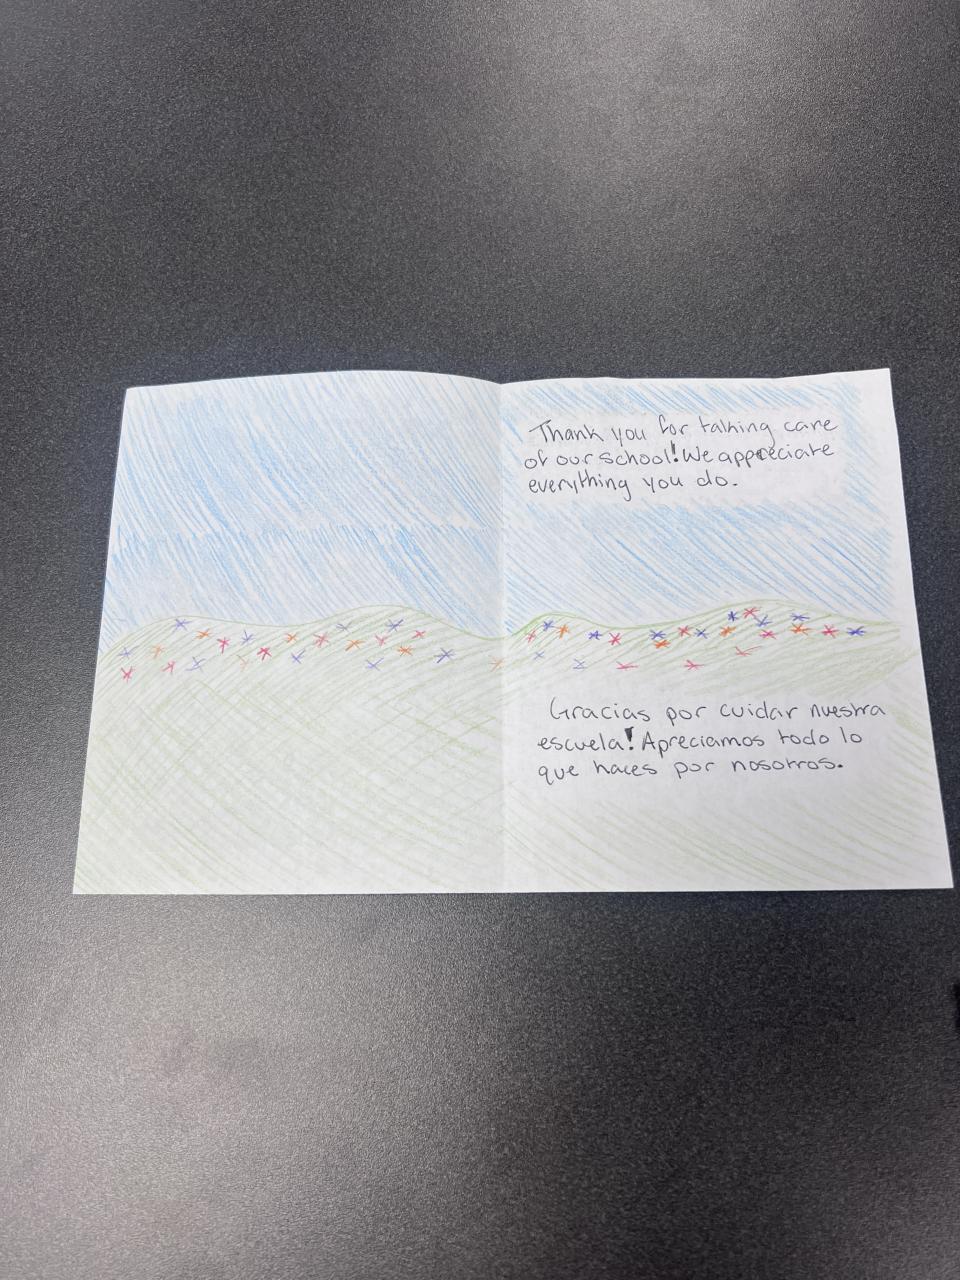 Thank you for talking care
of our school! We appreciate
everything you do.
Gracias por cuidar nuestra
escuela! Apreciamos todo lo
que haces por nosotros.